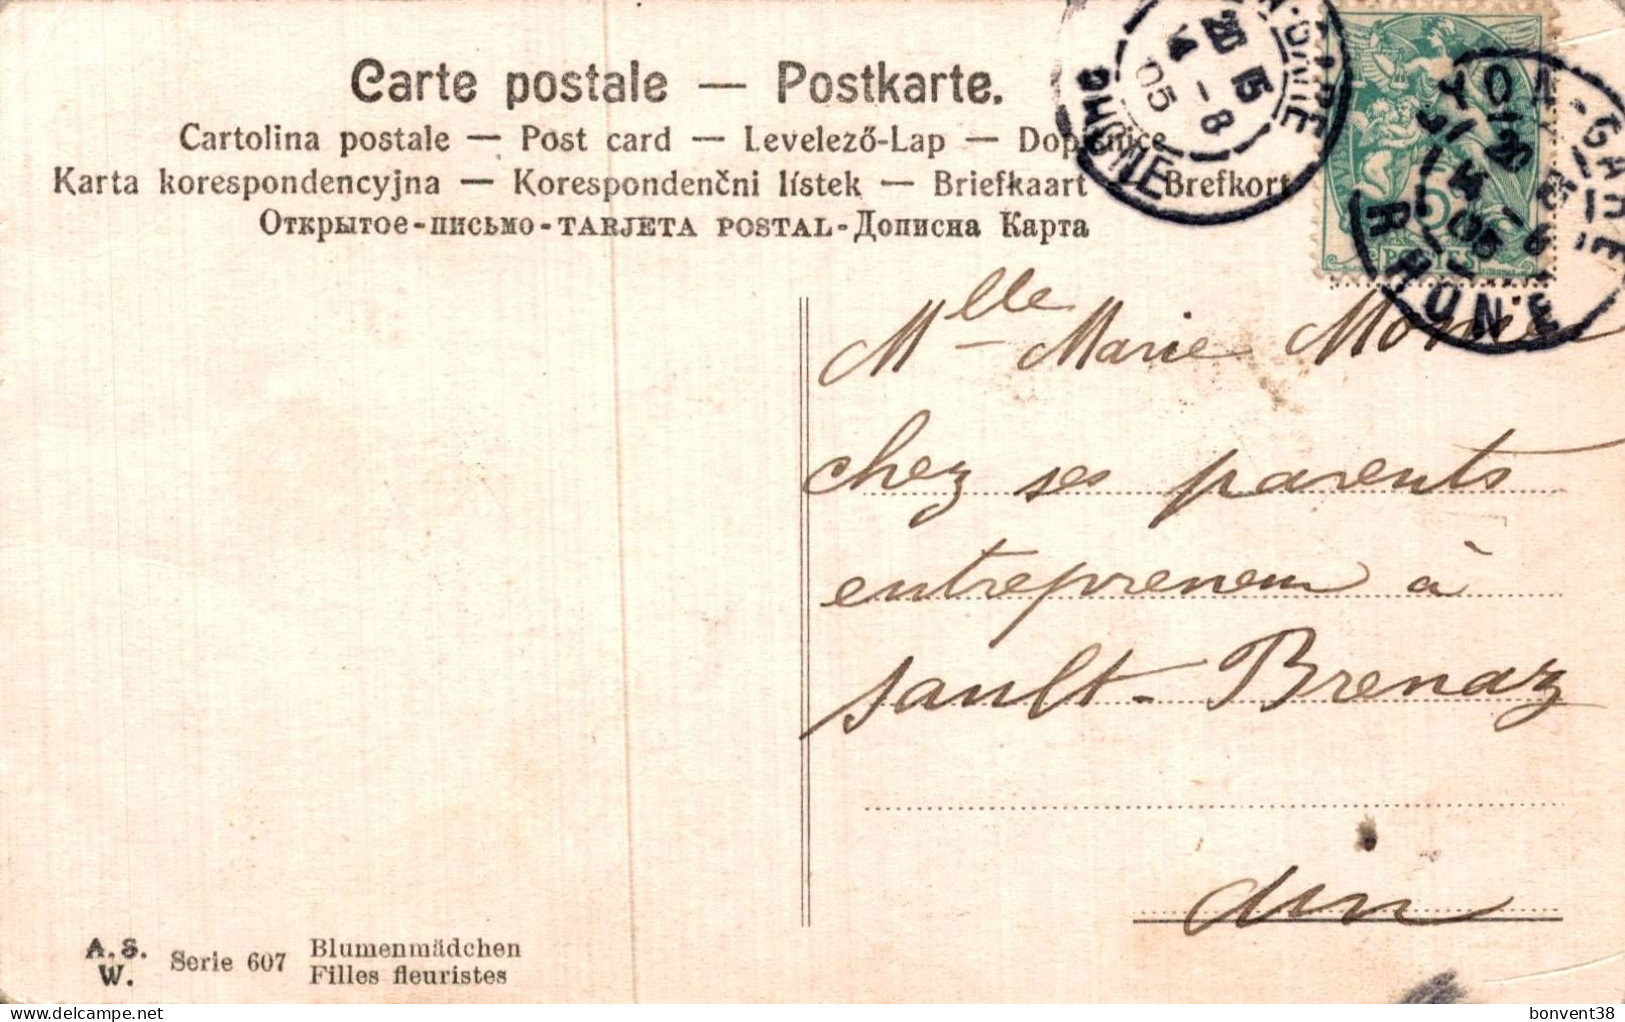 Carte postale — Postkarte.
Cartolina postale — Post card — Levelező-Lap — Dopisnice
Karta korespondencyjna — Korespondenční lístek — Briefkaart — Brefkort
Открытое-письмо-TARJETA POSTAL-Дописна Карта
20 15
14 - 8
05
RHONE
LYON-GARE
14 - 8
05
RHONE
5
POSTES
Mlle Marie
chez ses parents
entrepreneur à
Sault-Brenaz
A. S.
W.
Serie 607
Blumenmädchen
Filles fleuristes
bonvent38